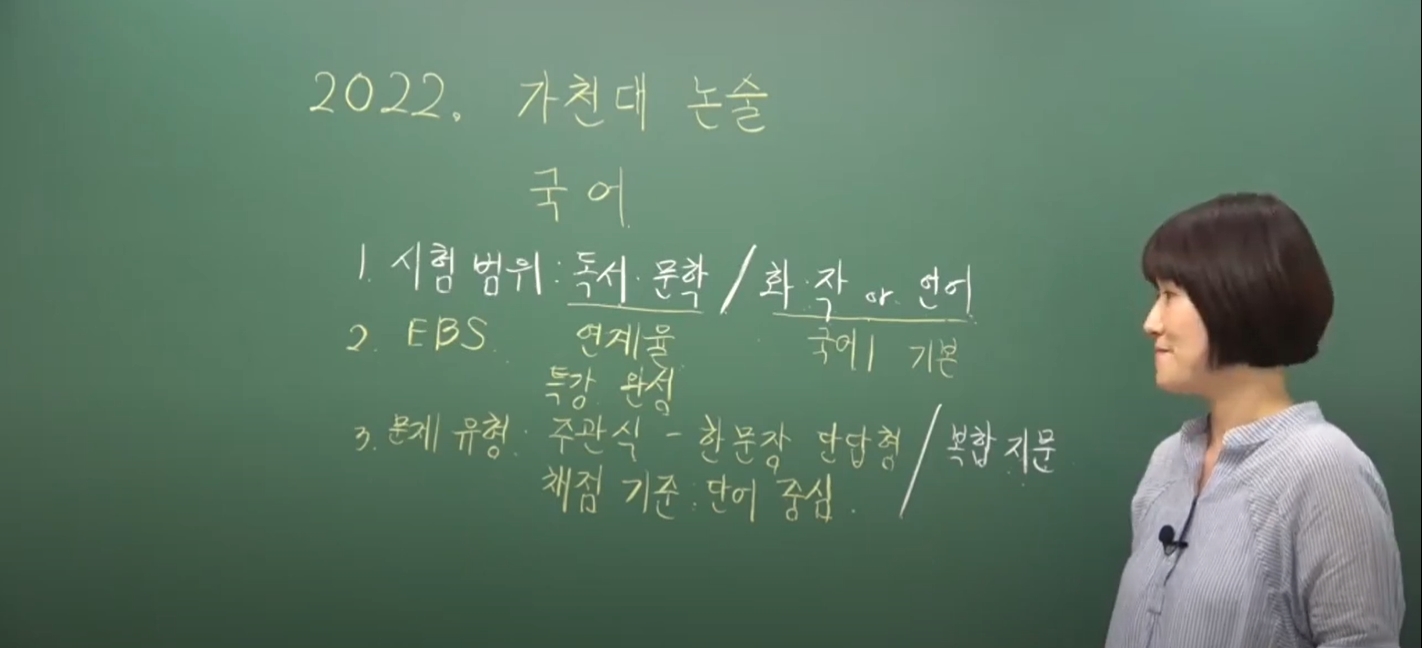 2022. 가천대 논술
국어
1. 시험 범위 : 독서·문학 / 화·작 or 언어
국어 1 기본
2. EBS 연계율
특강 완성
3. 문제 유형 : 주관식 - 한문장 단답형 / 복합 지문
채점 기준 : 단어 중심.